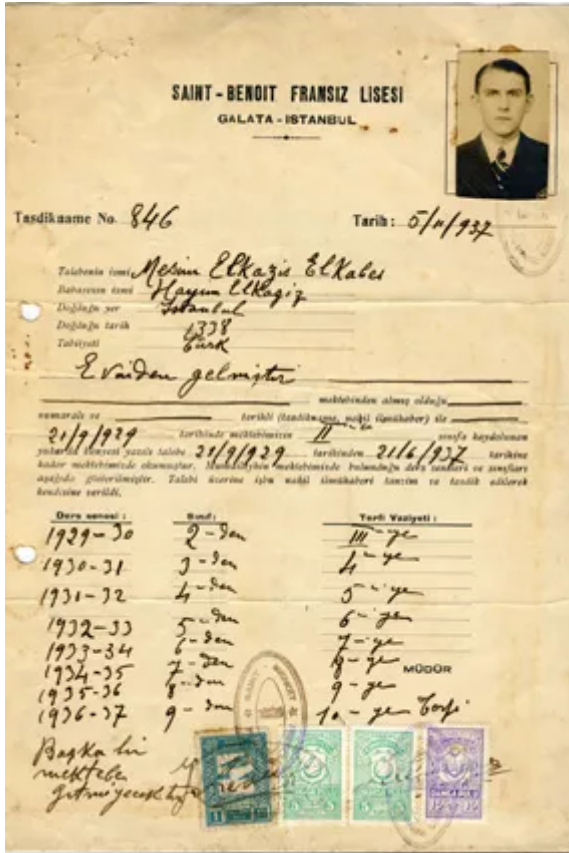 SAINT-BENOIT FRANSIZ LISESI
GALATA-ISTANBUL
Tasdikname No. 846 Tarih: 5/11/937
Talebenin ismi Elkaziz Elkabes
Babasının ismi Hayim Elkaziz
Doğduğu yer İstanbul
Doğduğu tarih 1338
Tabiiyeti Türk
Evinden gelmiştir
mektebinden almış olduğu
numaralı ve tarihli (tasdikname, nakil ilmühaber) ile
21/9/929 tarihinde mektebimizin III sınıfa kaydolunan
yukarıda künyesi yazılı talebe 21/9/929 tarihinden 21/6/937 tarihine
kadar mektebimizde okumuştur. mektebimizde bulunduğu ders seneleri ve sınıfları
aşağıda gösterilmiştir. Talebi üzerine işbu nakil ilmühaberi tanzim ve tasdik edilerek
kendisine verildi.
Ders senesi: Sınıf: Terfi Vaziyeti:
1929-30 2-den III-ye
1930-31 3-den 4-ye
1931-32 4-den 5-ye
1932-33 5-den 6-ye
1933-34 6-den 7-ye
1934-35 7-den 8-ye
MÜDÜR
1935-36 8-den 9-ye
1936-37 9-den 10-ye terfi
Başka bir
mektebe
gitmiyecektir